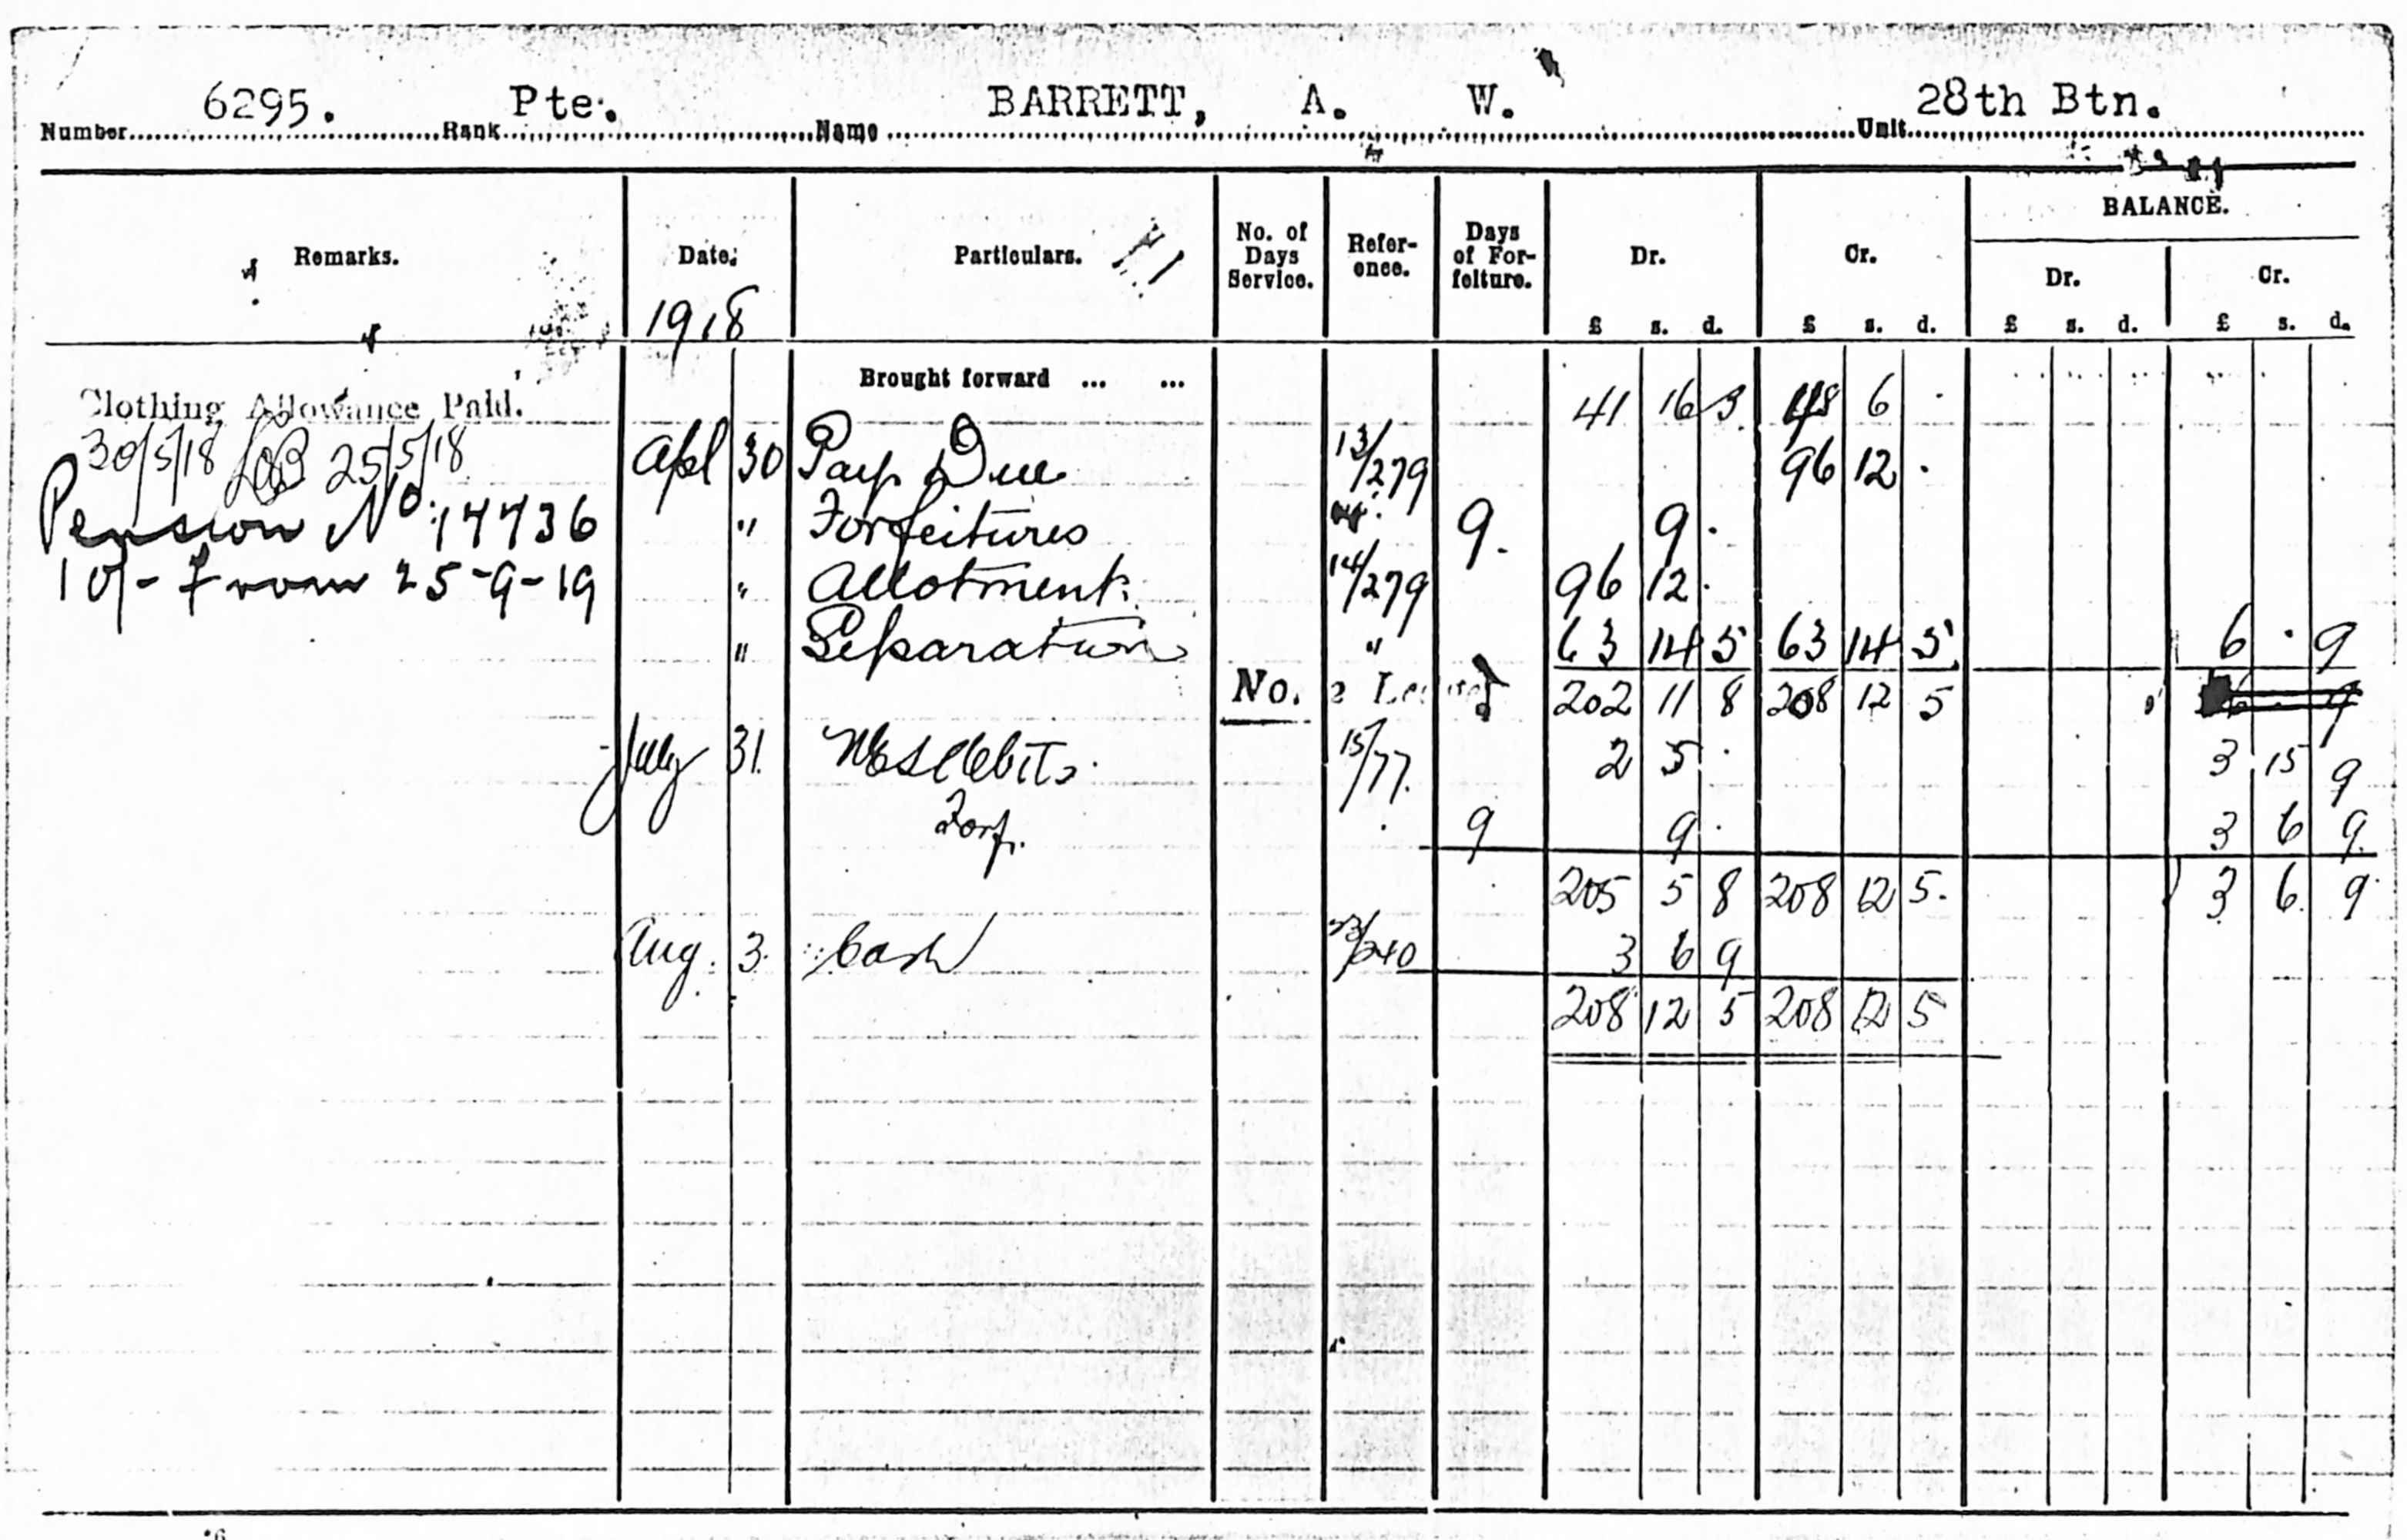 Number 6295. Rank Pte. Name BARRETT, A. W. Unit 28th Btn.
Remarks. Date. Particulars. No. of Days Service. Reference. Days of Forfeiture. Dr. Cr. BALANCE.
Dr. Cr.
1918 £ s. d. £ s. d. £ s. d. £ s. d.
Brought forward ... ... 41 16 3 48 6 .
Clothing Allowance Paid.
30/5/18 25/5/18 Apl 30 Pay Due 13/279 96 12 .
Pension No. 14436 " Forfeitures 9. 9 .
10/- from 25-9-19 " Allotment. 14/279 96 12 .
" Separation " 63 14 5 63 14 5 6 . 9
No. 202 11 8 208 12 5 6 . 9
July 31. Debits 15/77. 2 5 . 3 15 9
Forf. 9 9 . 3 6 9.
205 5 8 208 12 5. 3 6 9
Aug. 3. Cash /240 3 6 9
208 12 5 208 12 5
*6